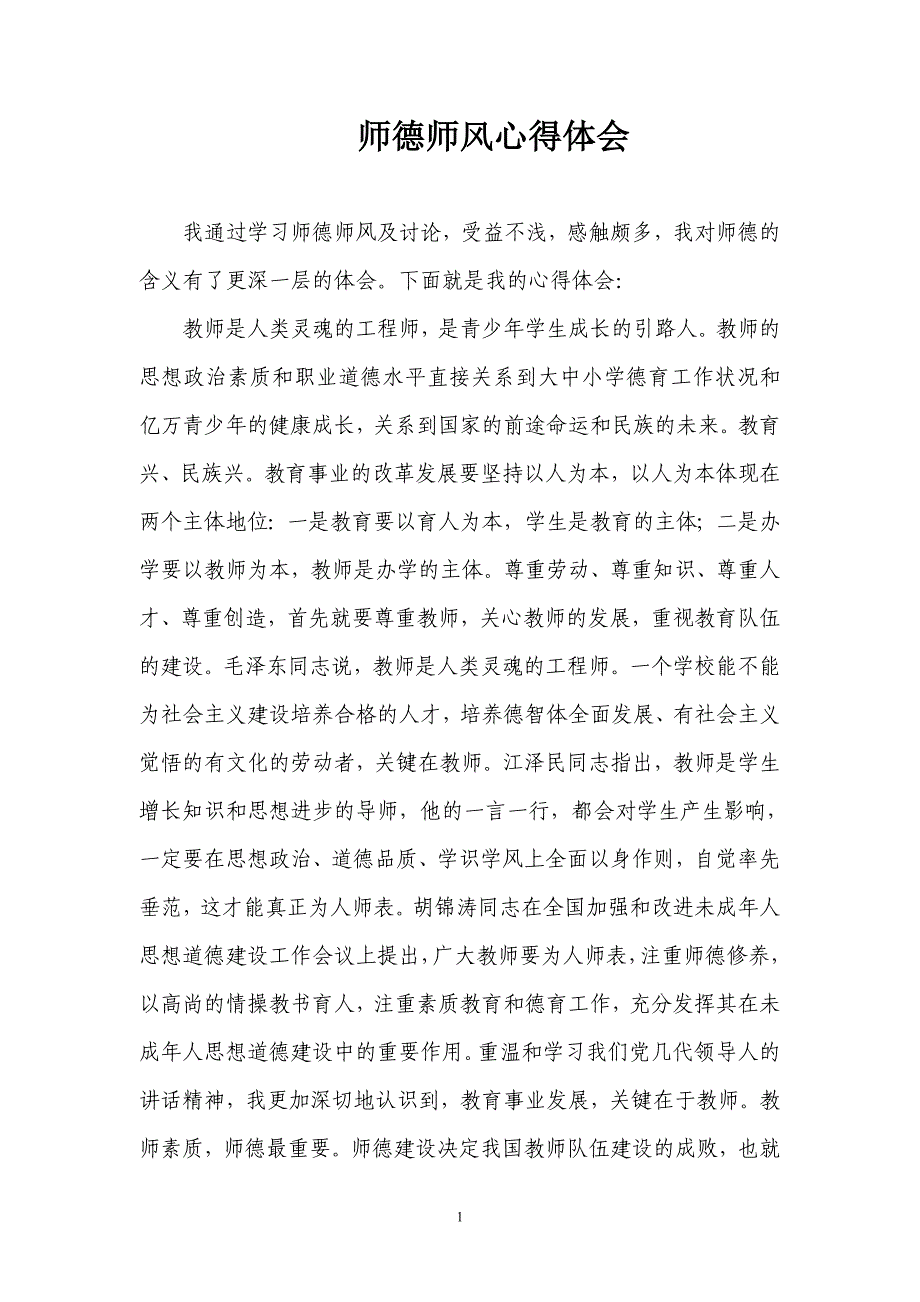 师德师风心得体会
我通过学习师德师风及讨论，受益不浅，感触颇多，我对师德的
含义有了更深一层的体会。下面就是我的心得体会：
教师是人类灵魂的工程师，是青少年学生成长的引路人。教师的
思想政治素质和职业道德水平直接关系到大中小学德育工作状况和
亿万青少年的健康成长，关系到国家的前途命运和民族的未来。教育
兴、民族兴。教育事业的改革发展要坚持以人为本，以人为本体现在
两个主体地位：一是教育要以育人为本，学生是教育的主体；二是办
学要以教师为本，教师是办学的主体。尊重劳动、尊重知识、尊重人
才、尊重创造，首先就要尊重教师，关心教师的发展，重视教育队伍
的建设。毛泽东同志说，教师是人类灵魂的工程师。一个学校能不能
为社会主义建设培养合格的人才，培养德智体全面发展、有社会主义
觉悟的有文化的劳动者，关键在教师。江泽民同志指出，教师是学生
增长知识和思想进步的导师，他的一言一行，都会对学生产生影响，
一定要在思想政治、道德品质、学识学风上全面以身作则，自觉率先
垂范，这才能真正为人师表。胡锦涛同志在全国加强和改进未成年人
思想道德建设工作会议上提出，广大教师要为人师表，注重师德修养，
以高尚的情操教书育人，注重素质教育和德育工作，充分发挥其在未
成年人思想道德建设中的重要作用。重温和学习我们党几代领导人的
讲话精神，我更加深切地认识到，教育事业发展，关键在于教师。教
师素质，师德最重要。师德建设决定我国教师队伍建设的成败，也就
1